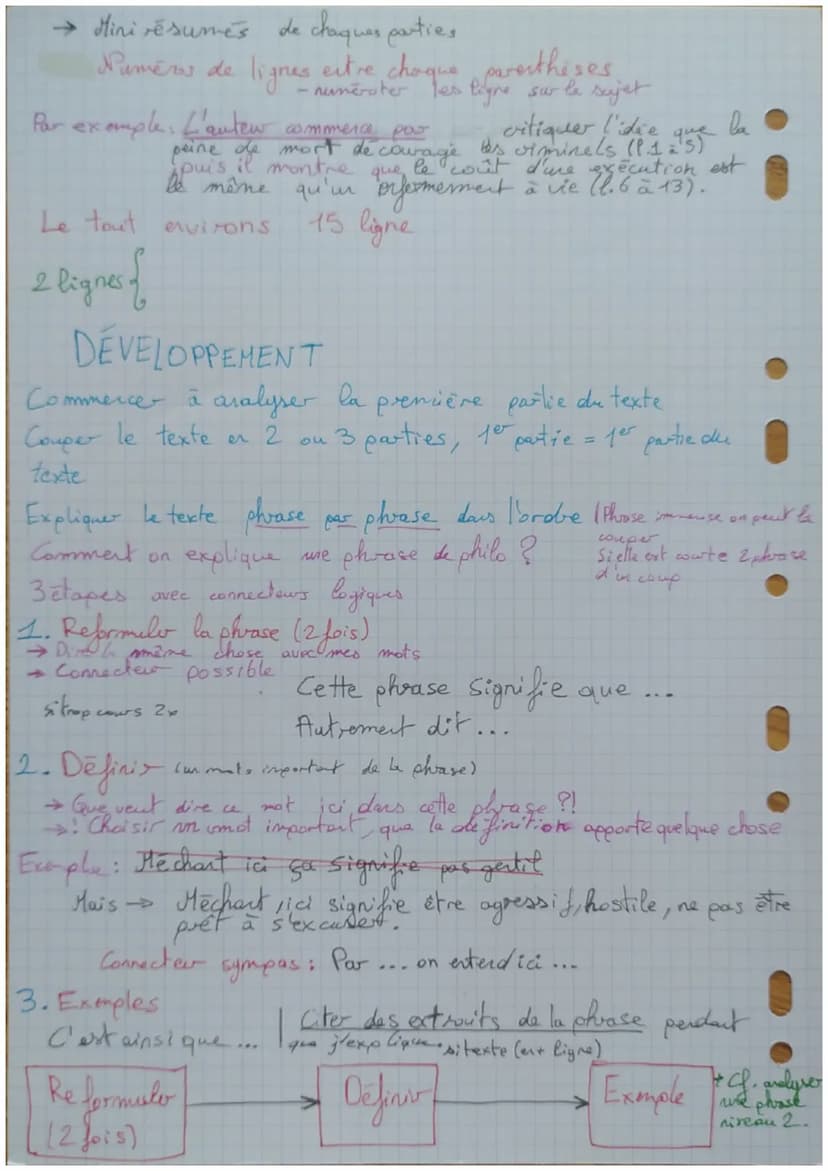 → Mini résumés de chaques parties
Numéros de lignes entre chaque parenthèses
- numéroter les ligne sur le sujet
Par exemple: L'auteur commence par critiquer l'idée que la
peine de mort décourage les criminels (l.1 à 5)
puis il montre que le coût d'une exécution est
le même qu'un enfermement à vie (l.6 à 13).
Le tout environs 15 ligne
2 lignes {
DÉVELOPPEMENT
Commencer à analyser la première partie du texte
Couper le texte en 2 ou 3 parties, 1er partie = 1er partie du
texte
Expliquer le texte phrase par phrase dans l'ordre (Phrase immense on peut la
couper
Comment on explique une phrase de philo ? Si elle est courte 2 phrase
d'un coup
3 étapes avec connecteurs logiques
1. Reformuler la phrase (2 fois)
→ Dire la même chose avec mes mots
→ Connecteur possible
Cette phrase signifie que ...
si trop cours 2x
Autrement dit...
2. Définir (un mots important de la phrase)
→ Que veut dire ce mot ici dans cette phrase ?!
→ ! Choisir un mot important, que la définition apporte quelque chose
Exemple: Méchant ici ça signifie pas gentil
Mais → Méchant, ici signifie être agressif, hostile, ne pas être
prêt à s'excuser.
Connecteur sympas: Par ... on entend ici ...
3. Exemples
C'est ainsi que ... | Citer des extraits de la phrase pendant
que j'explique. si texte (en + ligne)
Reformuler
(2 fois)
Définir
Exemple
+ Cf. analyser
une phrase
niveau 2.